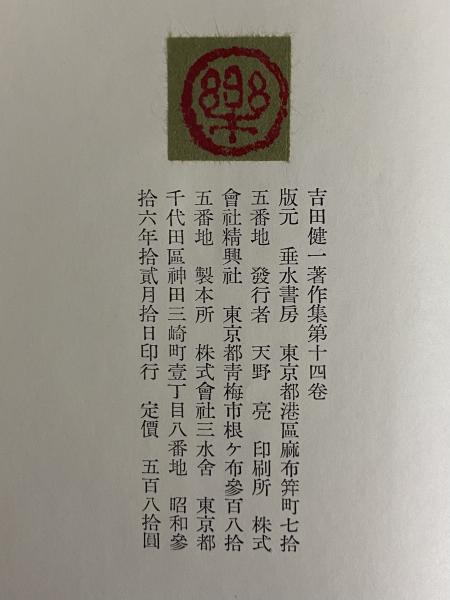 樂
吉田健一著作集第十四卷
版元　垂水書房　東京都港區麻布笄町七拾
五番地　發行者　天野　亮　印刷所　株式
會社精興社　東京都靑梅市根ヶ布參百八拾
五番地　製本所　株式會社三水舍　東京都
千代田區神田三崎町壹丁目八番地　昭和參
拾六年拾貳月拾日印行　定價　五百八拾圓